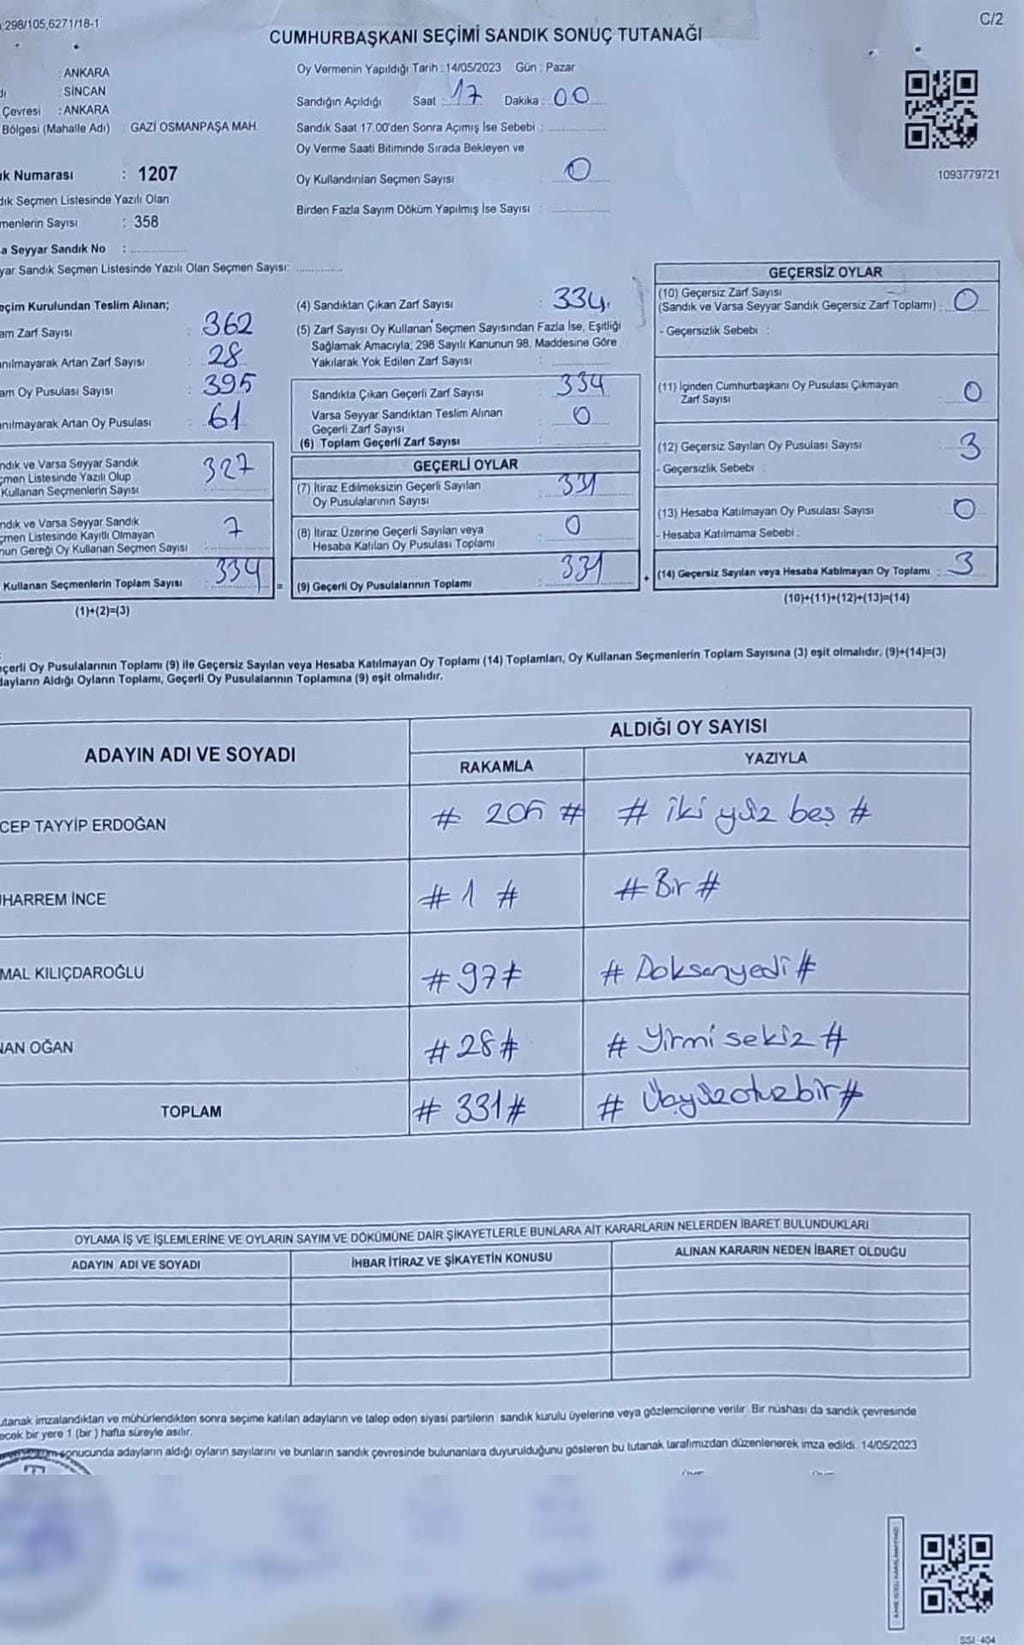 298/105,6271/18-1
C/2
CUMHURBAŞKANI SEÇİMİ SANDIK SONUÇ TUTANAĞI
: ANKARA
: SİNCAN
Çevresi : ANKARA
Bölgesi (Mahalle Adı) : GAZİ OSMANPAŞA MAH.
Numarası : 1207
Seçmen Listesinde Yazılı Olan
Sayısı : 358
Seyyar Sandık No :
Sandık Seçmen Listesinde Yazılı Olan Seçmen Sayısı:
Oy Vermenin Yapıldığı Tarih : 14/05/2023 Gün : Pazar
Sandığın Açıldığı Saat : 17 Dakika : 00
Sandık Saat 17.00'den Sonra Açımış İse Sebebi :
Oy Verme Saati Bitiminde Sırada Bekleyen ve
Oy Kullandırılan Seçmen Sayısı : 0
Birden Fazla Sayım Döküm Yapılmış İse Sayısı :
1093779721
Kurulundan Teslim Alınan;
Zarf Sayısı : 362
Artan Zarf Sayısı : 28
Oy Pusulası Sayısı : 395
Artan Oy Pusulası : 61
ve Varsa Seyyar Sandık
Listesinde Yazılı Olup
Kullanan Seçmenlerin Sayısı 327
ve Varsa Seyyar Sandık
Listesinde Kayıtlı Olmayan
Gereği Oy Kullanan Seçmen Sayısı 7
Kullanan Seçmenlerin Toplam Sayısı 334 =
(1)+(2)=(3)
(4) Sandıktan Çıkan Zarf Sayısı : 334
(5) Zarf Sayısı Oy Kullanan Seçmen Sayısından Fazla İse, Eşitliği
Sağlamak Amacıyla; 298 Sayılı Kanunun 98. Maddesine Göre
Yakılarak Yok Edilen Zarf Sayısı :
Sandıkta Çıkan Geçerli Zarf Sayısı : 334
Varsa Seyyar Sandıktan Teslim Alınan
Geçerli Zarf Sayısı : 0
(6) Toplam Geçerli Zarf Sayısı
GEÇERLİ OYLAR
(7) İtiraz Edilmeksizin Geçerli Sayılan
Oy Pusulalarının Sayısı : 331
(8) İtiraz Üzerine Geçerli Sayılan veya
Hesaba Katılan Oy Pusulası Toplamı : 0
(9) Geçerli Oy Pusulalarının Toplamı : 331 +
GEÇERSİZ OYLAR
(10) Geçersiz Zarf Sayısı
(Sandık ve Varsa Seyyar Sandık Geçersiz Zarf Toplamı) : 0
- Geçersizlik Sebebi :
(11) İçinden Cumhurbaşkanı Oy Pusulası Çıkmayan
Zarf Sayısı 0
(12) Geçersiz Sayılan Oy Pusulası Sayısı 3
- Geçersizlik Sebebi :
(13) Hesaba Katılmayan Oy Pusulası Sayısı 0
- Hesaba Katılmama Sebebi :
(14) Geçersiz Sayılan veya Hesaba Katılmayan Oy Toplamı : 3
(10)+(11)+(12)+(13)=(14)
Oy Pusulalarının Toplamı (9) ile Geçersiz Sayılan veya Hesaba Katılmayan Oy Toplamı (14) Toplamları, Oy Kullanan Seçmenlerin Toplam Sayısına (3) eşit olmalıdır. (9)+(14)=(3)
Aldığı Oyların Toplamı, Geçerli Oy Pusulalarının Toplamına (9) eşit olmalıdır.
ADAYIN ADI VE SOYADI
ALDIĞI OY SAYISI
RAKAMLA YAZIYLA
CEP TAYYİP ERDOĞAN # 205 # # iki yüz beş #
HARREM İNCE # 1 # # Bir #
MAL KILIÇDAROĞLU # 97 # # Doksanyedi #
NAN OĞAN # 28 # # Yirmi sekiz #
TOPLAM # 331 # # Üçyüzotuzbir #
OYLAMA İŞ VE İŞLEMLERİNE VE OYLARIN SAYIM VE DÖKÜMÜNE DAİR ŞİKAYETLERLE BUNLARA AİT KARARLARIN NELERDEN İBARET BULUNDUKLARI
ADAYIN ADI VE SOYADI İHBAR İTİRAZ VE ŞİKAYETİN KONUSU ALINAN KARARIN NEDEN İBARET OLDUĞU
tutanak imzalandıktan ve mühürlendikten sonra seçime katılan adayların ve talep eden siyasi partilerin sandık kurulu üyelerine veya gözlemcilerine verilir. Bir nüshası da sandık çevresinde
bir yere 1 (bir) hafta süreyle asılır.
sonucunda adayların aldığı oyların sayılarını ve bunların sandık çevresinde bulunanlara duyurulduğunu gösteren bu tutanak tarafımızdan düzenlenerek imza edildi. 14/05/2023
SSI_404